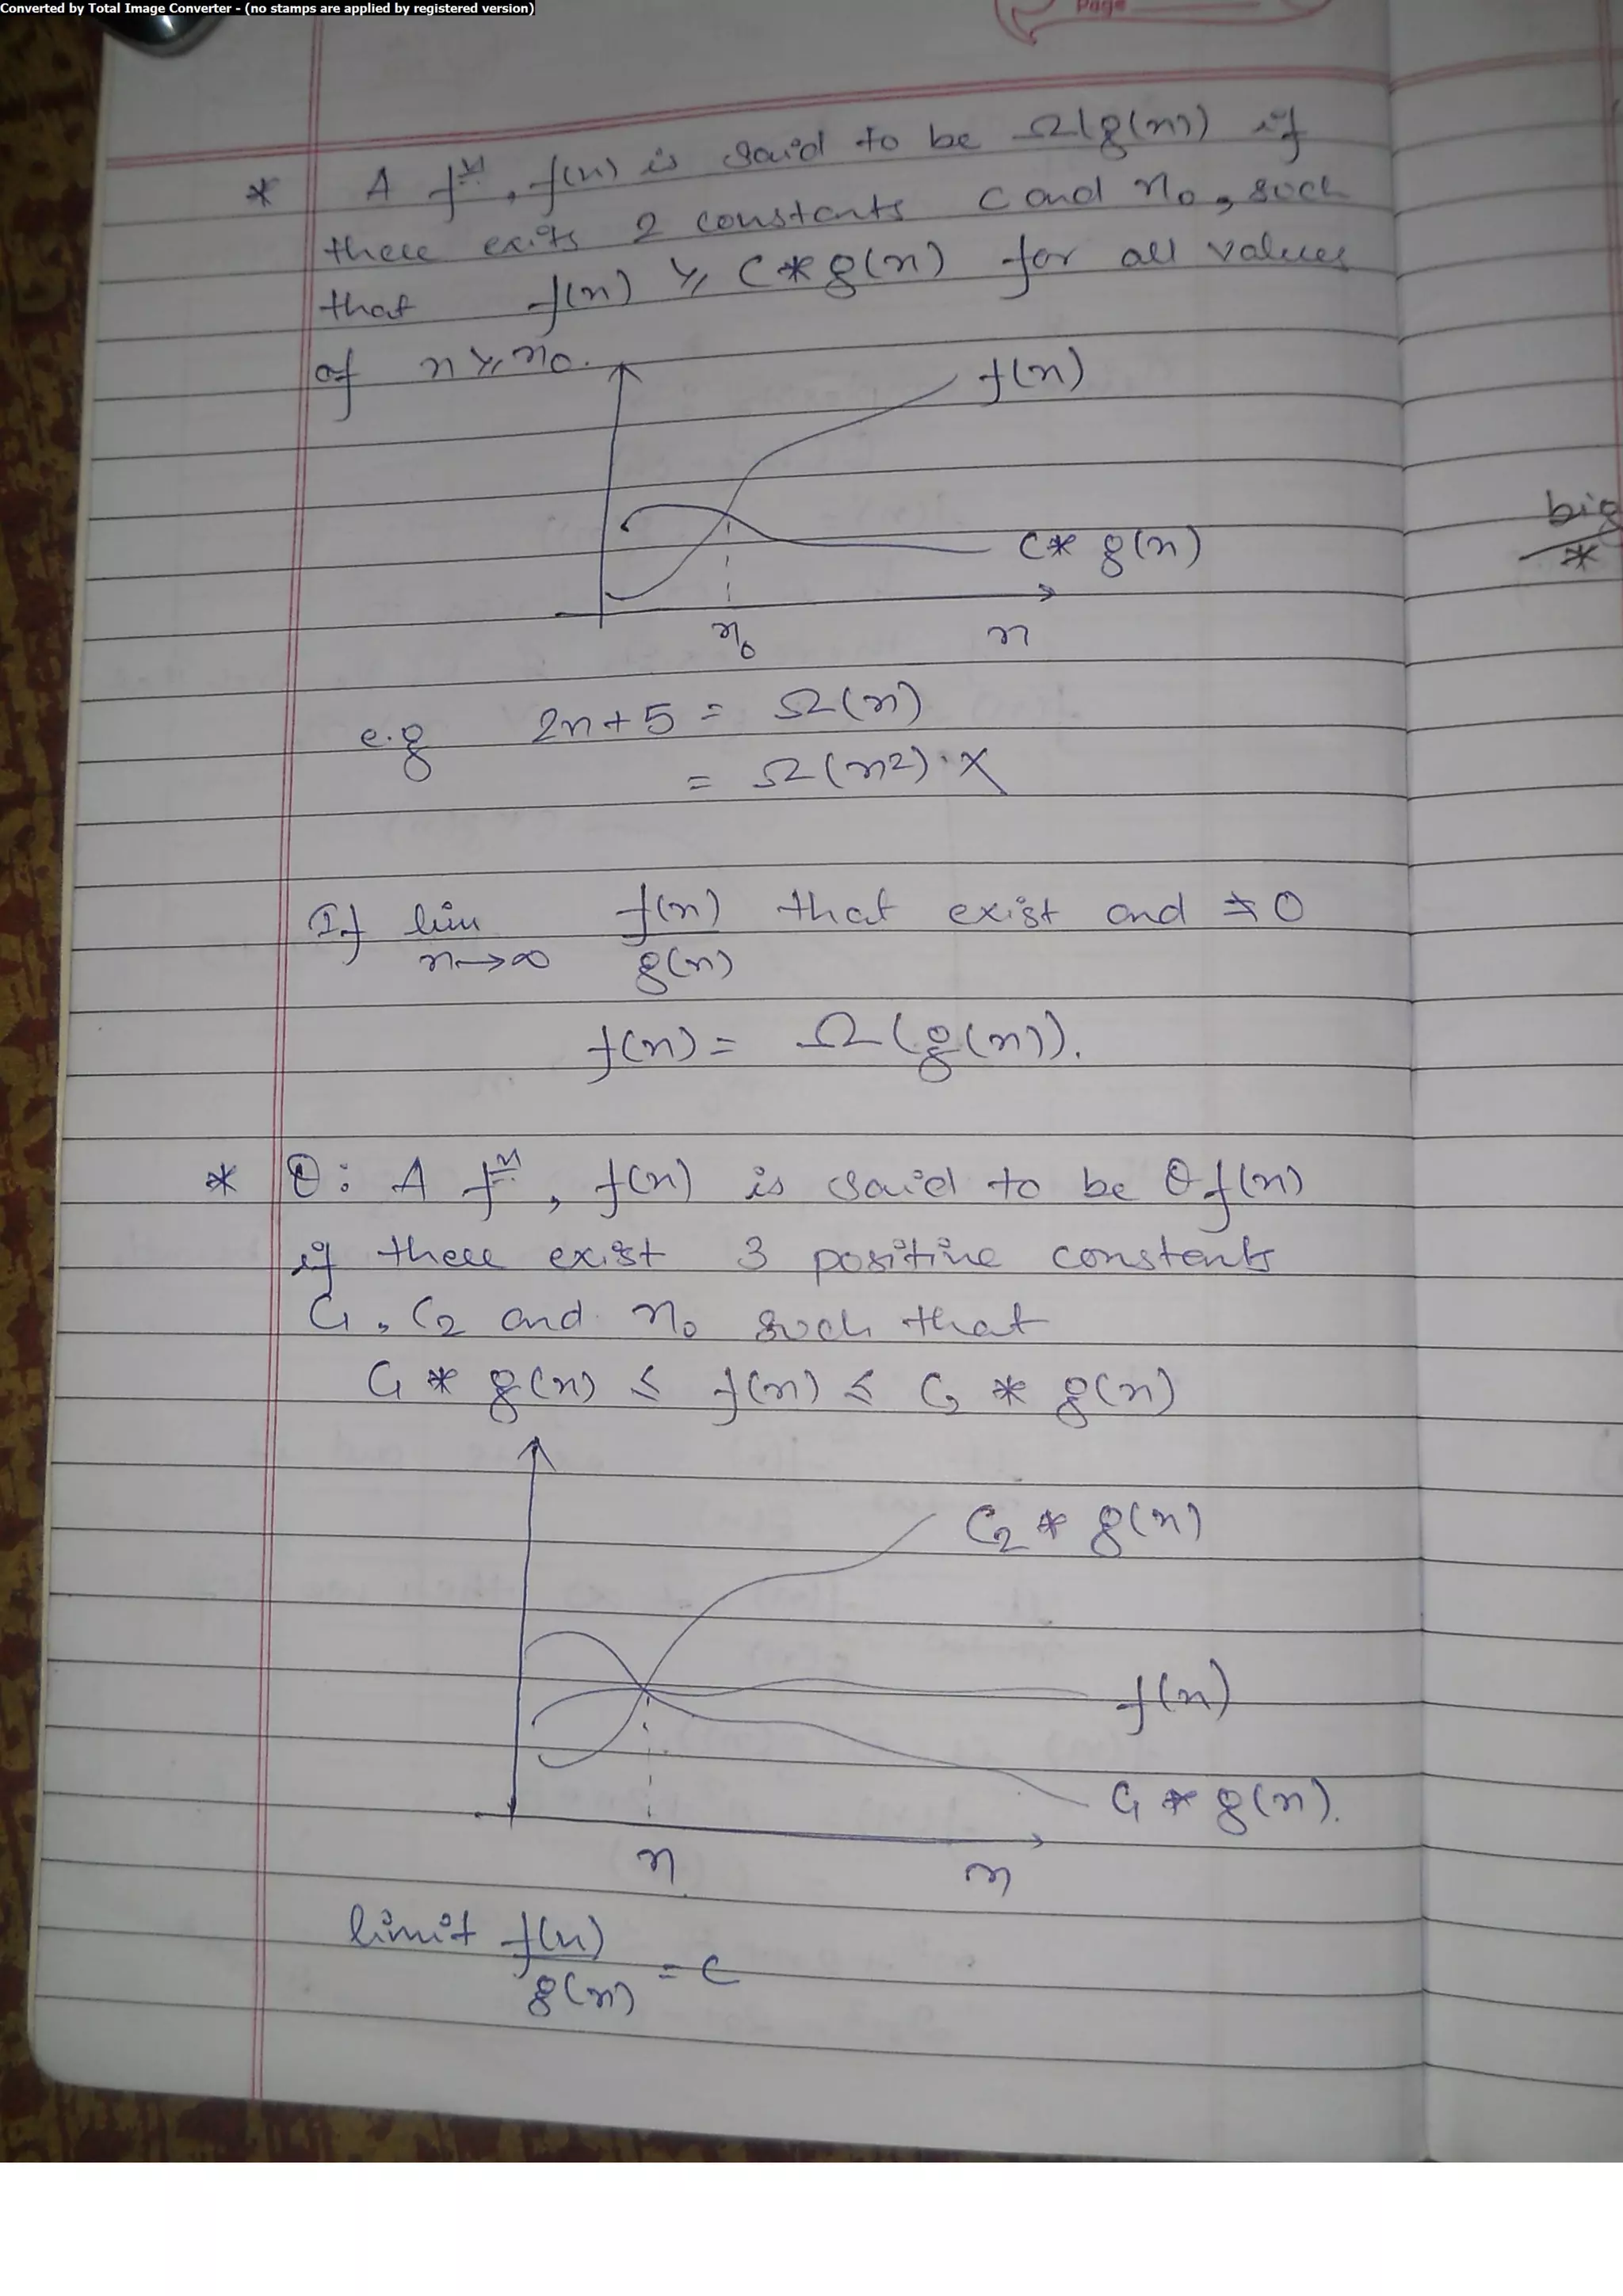 Converted by Total Image Converter - (no stamps are applied by registered version)
Page
* A fⁿ, f(n) is said to be Ω(g(n)) if
there exits 2 constants C and n₀, such
that f(n) ≥ C * g(n) for all values
of n ≥ n₀.
f(n)
C * g(n)
n₀ n
big
*
e.g 2n+5 = Ω(n)
= Ω(n²). X
If lim f(n) that exist and ≠ 0
n→∞ g(n)
f(n) = Ω(g(n)).
* θ: A fⁿ, f(n) is said to be θ f(n)
if there exist 3 positive constents
C₁, C₂ and n₀ such that
C₁ * g(n) ≤ f(n) ≤ C₂ * g(n)
C₂ * g(n)
f(n)
C₁ * g(n).
n n
limit f(n)
g(n) = C